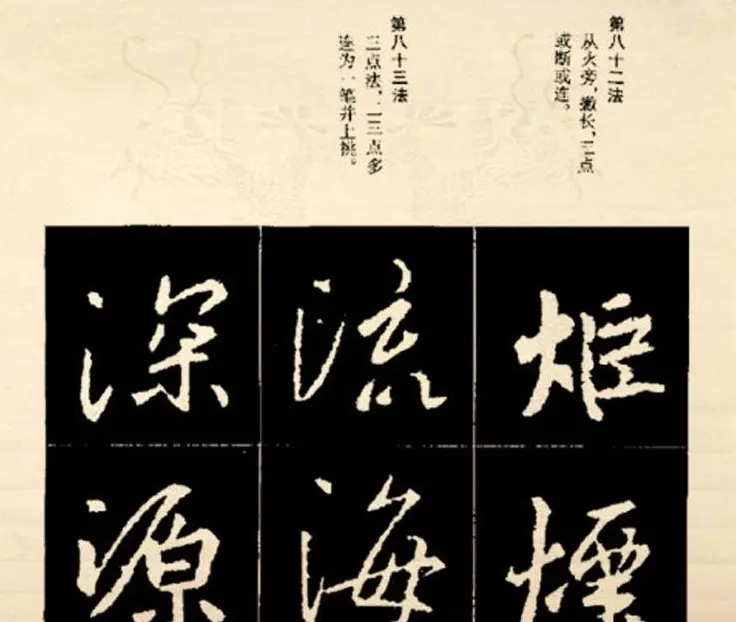 第八十二法
从火旁，撇长，三点
或断或连。
第八十三法
三点法，二三点多
连为一笔并上挑。
炬
煙
流
海
深
源